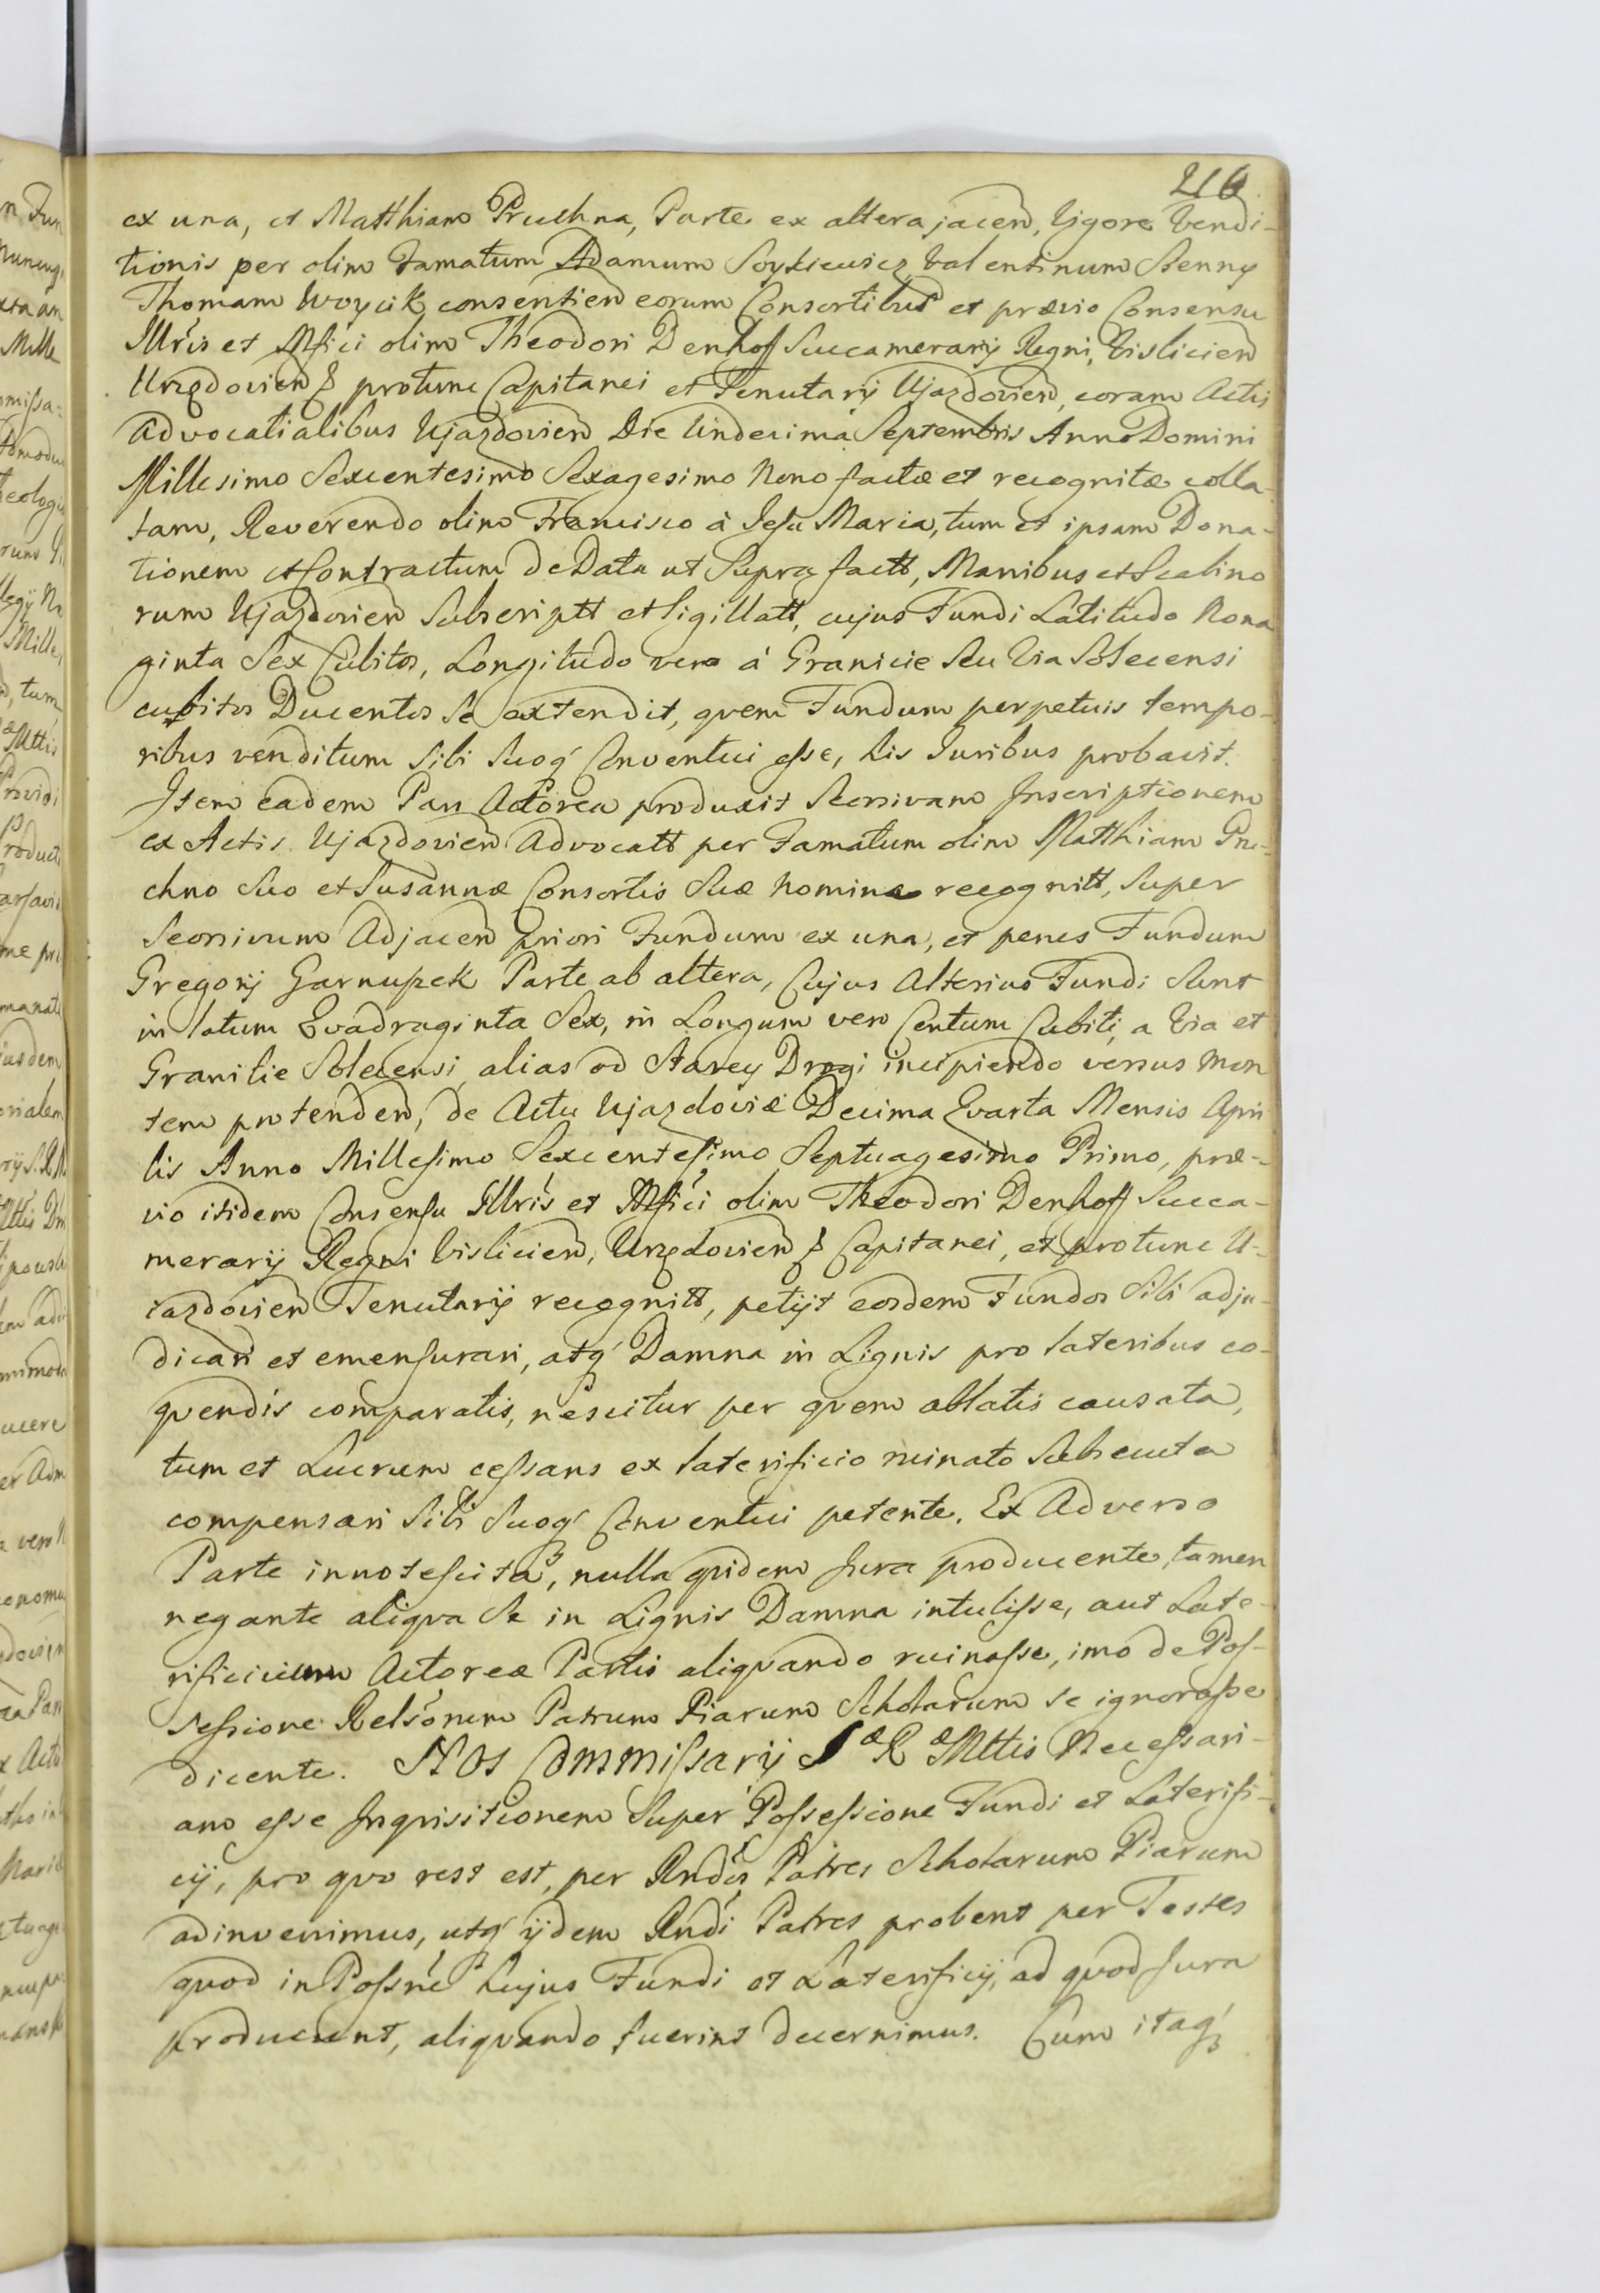 216
ex una, et Matthiam Pruchna, Parte ex altera jacen, Vigore Vendi-
tionis per olim Famatum Adamum Soykiewicz, Valentinum Stenny
Thomam Woycik consentien eorum Consortibus et prævio Consensu
Illris et Mfici olim Theodori Denhoff Succamerarij Regni, Vislicien
Urzędovien & protunc Capitanei et Tenutarij Ujazdovien, coram Actis
Advocatialibus Ujazdovien Die Undecima Septembris Anno Domini
Millesimo Sexcentesimo Sexagesimo Nono factæ et recognitæ colla-
tam, Reverendo olim Francisco à Jesu Maria, tum et ipsam Dona-
tionem et Contractum de Data ut Supra factt, Manibus et Scabino
rum Ujazdovien Subscriptt et Sigillatt, cujus Fundi Latitudo Nona
ginta Sex Cubitos, Longitudo vero á Granicie Seu Via Solecensi
cubitos Ducentos se extendit, qvem Fundum perpetuis tempo-
ribus venditum Sibi Suoq Conventui esse, his Juribus probavit.
Item eadem Pars Actorea produxit Seorsivam Inscriptionem
ex Actis Ujazdovien Advocatt per Famatum olim Matthiam Pru-
chno Suo et Susannæ Consortis Suæ Nomine recognitt, Super
Seorsivum Adjacen priori Fundum ex una, et penes Fundum
Gregorij Garnuszek Parte ab altera, Cujus Alterius Fundi Sunt
in latum Qvadraginta Sex, in Longum vero Centum Cubiti, a Via et
Granitie Solecensi, alias od Starey Drogi incipiendo versus Mon
tem protenden, de Actu Ujazdoviæ Decima Qvarta Mensis Apri
lis Anno Millesimo Sexcentesimo Septuagesimo Primo, præ-
vio itidem Consensu Illris et Mfici olim Theodori Denhoff Succa-
merarij Regni Vislicien, Urzędovien & Capitanei, et protunc U-
iazdovien Tenutarij recognitt, petijt eosdem Fundos Sibi adju-
dicari et emensurari, atq Damna in Lignis pro lateribus co-
qvendis comparatis, nescitur per qvem ablatis causata,
tum et Lucrum cessans ex laterificio ruinato Subsecuta
compensari Sibi Suoq Conventui petente. Ex Adverso
Parte innotescita, nulla qvidem Jura producente, tamen
negante aliqva Se in Lignis Damna intulisse, aut Late-
rificium Actoreæ Partis aliqvando ruinasse, imo de Pos-
sessione Relsorum Patrum Piarum Scholarum se ignorasse
dicente. Nos Commissarij Sæ Ræ Mttis Necessari-
am esse Inqvisitionem Super Possessione Fundi et Laterifi-
cij, pro qvo rest est, per Rndos Patres Scholarum Piarum
adinvenimus, utq ijdem Rndi Patres probent per Testes
quod in Possne hujus Fundi et Laterificij, ad quod Jura
producunt, aliqvando fuerint decernimus. Cum itaq